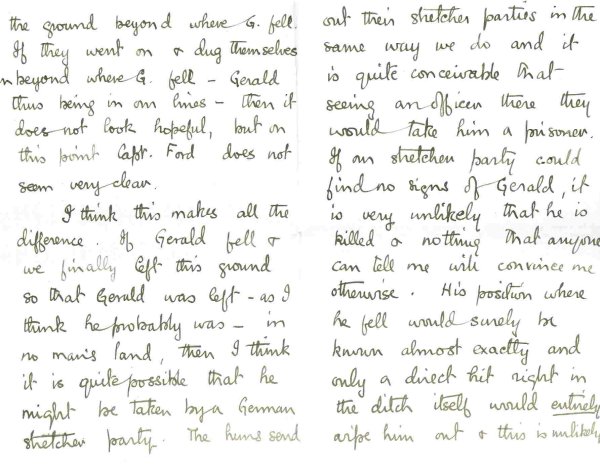 the ground beyond where G. fell.
If they went on & dug themselves
in beyond where G. fell – Gerald
thus being in our lines – then it
does not look hopeful, but on
this point Capt. Ford does not
seem very clear.
I think this makes all the
difference. If Gerald fell &
we finally left this ground
so that Gerald was left – as I
think he probably was – in
no man's land, then I think
it is quite possible that he
might be taken by a German
stretcher party. The huns send
out their stretcher parties in the
same way we do and it
is quite conceivable that
seeing an officer there they
would take him a prisoner.
If our stretcher party could
find no signs of Gerald, it
is very unlikely that he is
killed & nothing that anyone
can tell me will convince me
otherwise. His position where
he fell would surely be
known almost exactly and
only a direct hit right in
the ditch itself would entirely
wipe him out & this is unlikely